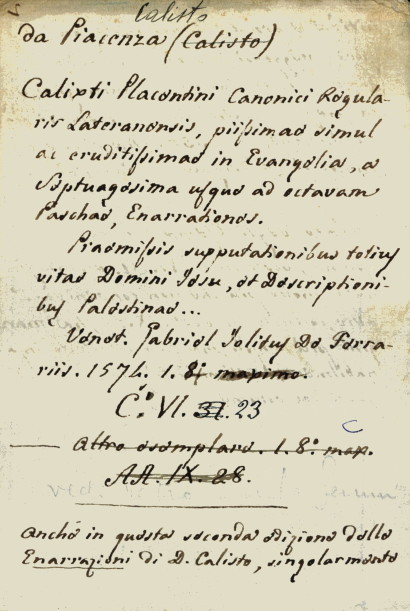 5
Calisto
da Piacenza (Calisto)
Calixti Placentini Canonici Regula-
ris Lateranensis, piissimae simul
ac eruditissimae in Evangelia, a
Septuagesima usque ad octavam
Paschae, Enarrationes.
Praemissis supputationibus totius
vitae Domini Iesu, et Descriptioni-
bus Palestinae...
Venet. Gabriel Iolitus De Ferra-
riis. 1574. 1. 8º maximo.
C.º VI. 31. 23
Altro esemplare. 1. 8.º max.
AA. IX. 28.
Anche in questa seconda edizione delle
Enarrazioni di D. Calisto, singolarmente